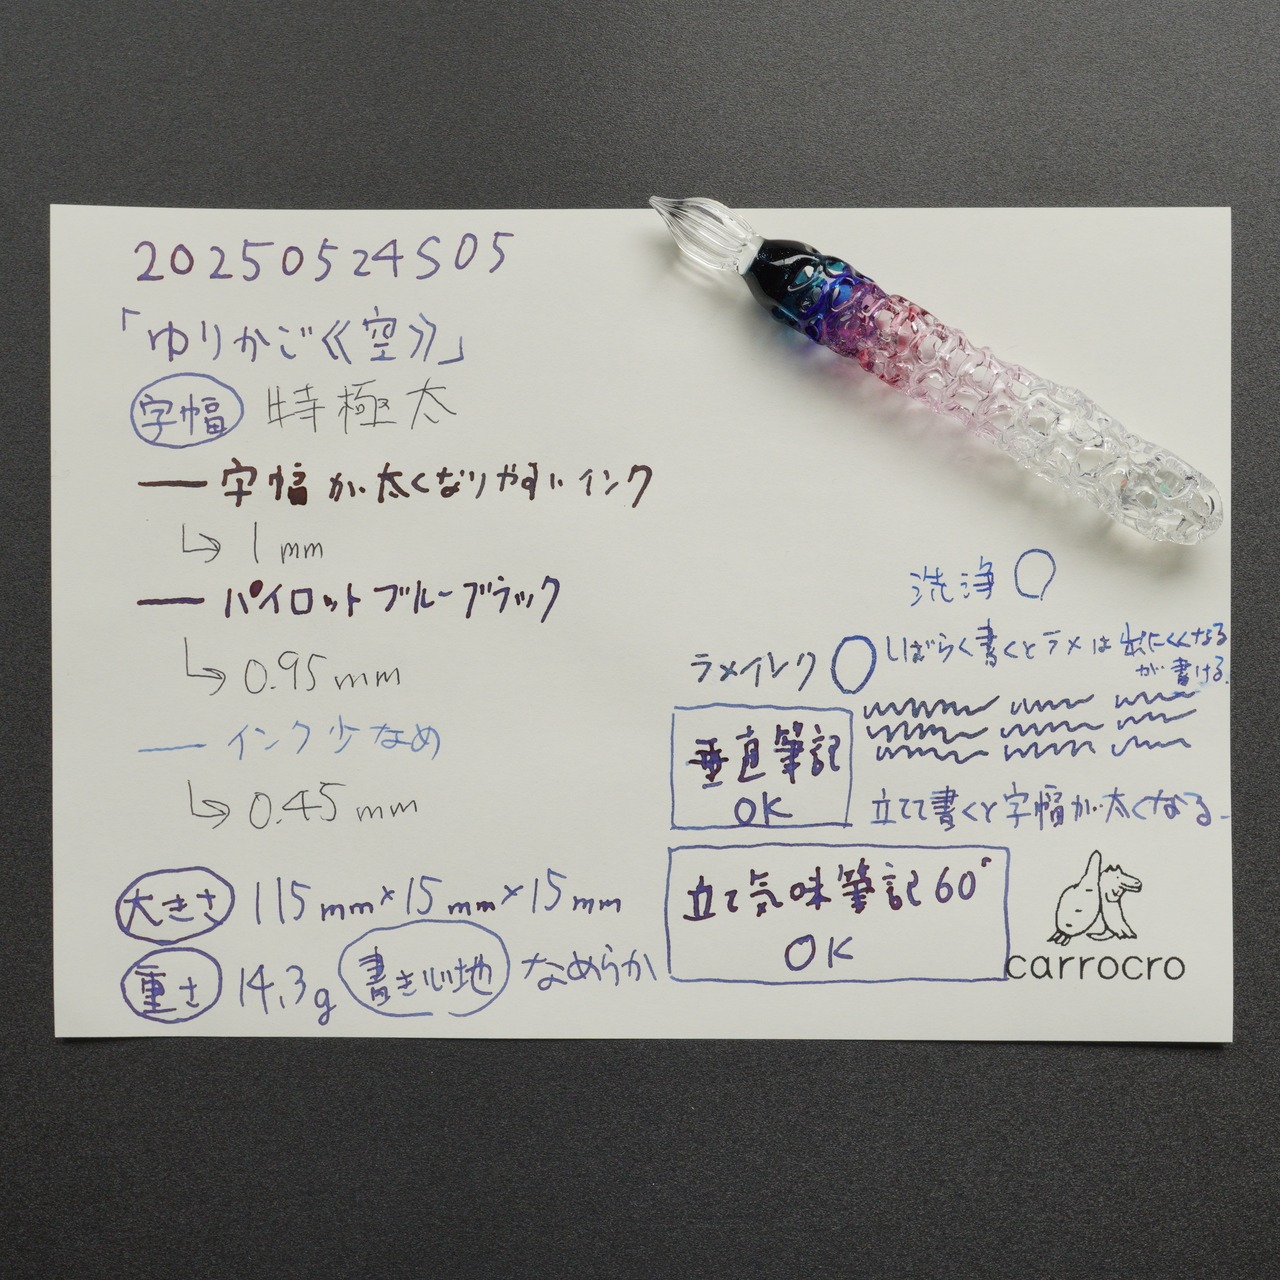 20250524S05
「ゆりかご《空》」
字幅 特極太
字幅が太くなりやすいインク
↳ 1mm
パイロットブルーブラック
↳ 0.95mm
インク少なめ
↳ 0.45mm
大きさ 115mm×15mm×15mm
重さ 14.3g 書き心地 なめらか
洗浄 ○
ラメインク ○ しばらく書くとラメは出にくくなる
が書ける.
垂直筆記
OK
立てて書くと字幅が太くなる
立て気味筆記60°
OK
carrocro